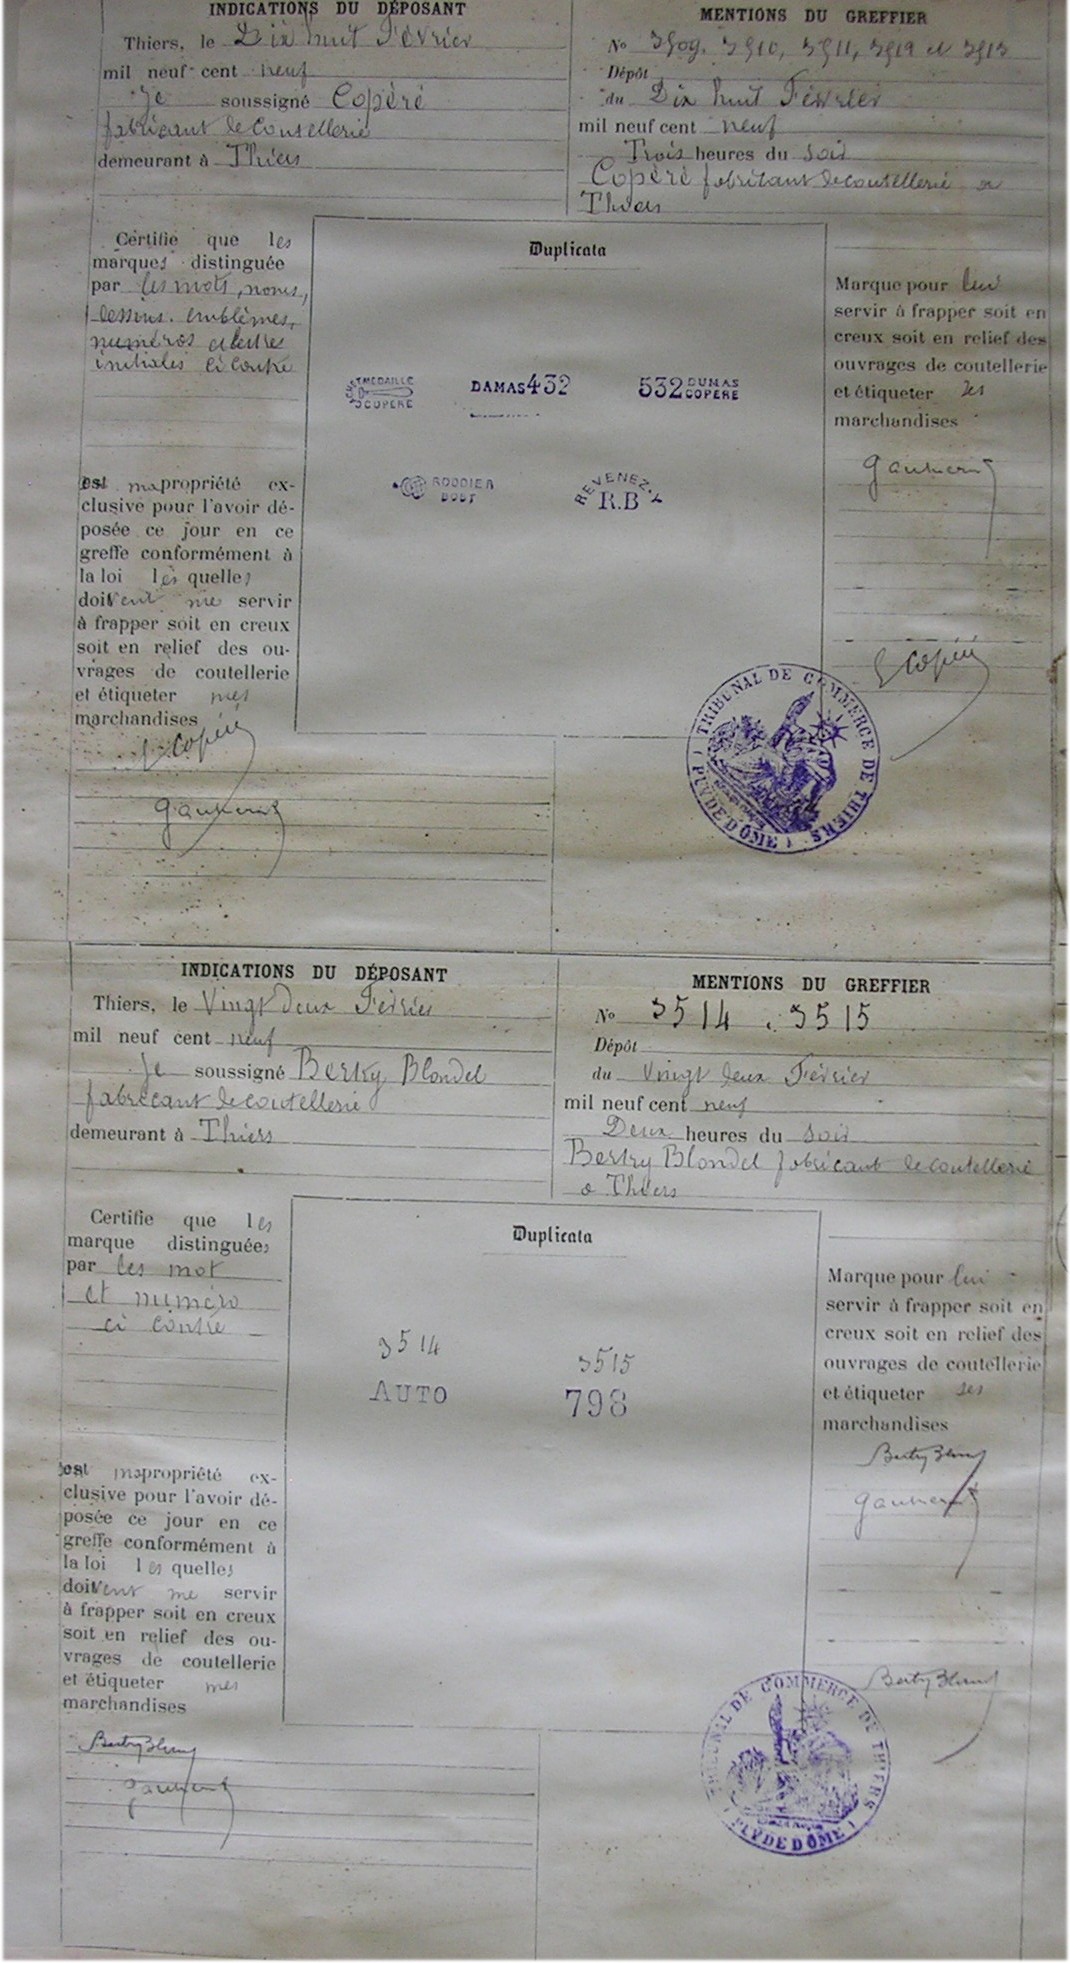 INDICATIONS DU DÉPOSANT
Thiers, le Dix huit Février
mil neuf cent neuf
Je soussigné Copéré
fabricant de coutellerie
demeurant à Thiers
MENTIONS DU GREFFIER
No 3509. 3510, 3511, 3512 et 3513
Dépôt
du Dix huit Février
mil neuf cent neuf
Trois heures du soir
Copéré fabricant de coutellerie a
Thiers
Certifie que les
marques distinguée
par les mots, noms,
dessins. emblèmes,
numéros et lettres
initiales ci contre
est ma propriété ex-
clusive pour l'avoir dé-
posée ce jour en ce
greffe conformément à
la loi lesquelles
doivent me servir
à frapper soit en creux
soit en relief des ou-
vrages de coutellerie
et étiqueter mes
marchandises
Copéré
Duplicata
MEDAILLE
COPERE
DAMAS 432
532 DUMAS
COPERE
RODDIER
BOST
REVENEZ-Y
R.B
Marque pour lui
servir à frapper soit en
creux soit en relief des
ouvrages de coutellerie
et étiqueter ses
marchandises
Copéré
TRIBUNAL DE COMMERCE DE THIERS
(PUY DE DÔME)
INDICATIONS DU DÉPOSANT
Thiers, le Vingt deux Février
mil neuf cent neuf
Je soussigné Bertry Blondel
fabricant de coutellerie
demeurant à Thiers
MENTIONS DU GREFFIER
No 3514. 3515
Dépôt
du Vingt deux Février
mil neuf cent neuf
Deux heures du soir
Bertry Blondel fabricant de coutellerie
a Thiers
Certifie que les
marque distinguées
par les mot
et numéro
ci contre
est ma propriété ex-
clusive pour l'avoir dé-
posée ce jour en ce
greffe conformément à
la loi lesquelles
doivent me servir
à frapper soit en creux
soit en relief des ou-
vrages de coutellerie
et étiqueter mes
marchandises
Duplicata
3514
AUTO
3515
798
Marque pour lui
servir à frapper soit en
creux soit en relief des
ouvrages de coutellerie
et étiqueter ses
marchandises
TRIBUNAL DE COMMERCE DE THIERS
(PUY DE DÔME)